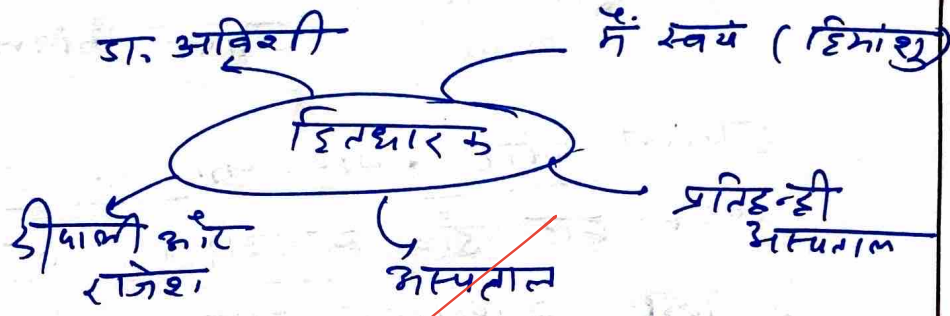 डा. आविशी
मैं स्वयं (हिमांशु)
हितधारक
दीपाली और
राजेश
अस्पताल
प्रतिद्वन्दी
अस्पताल